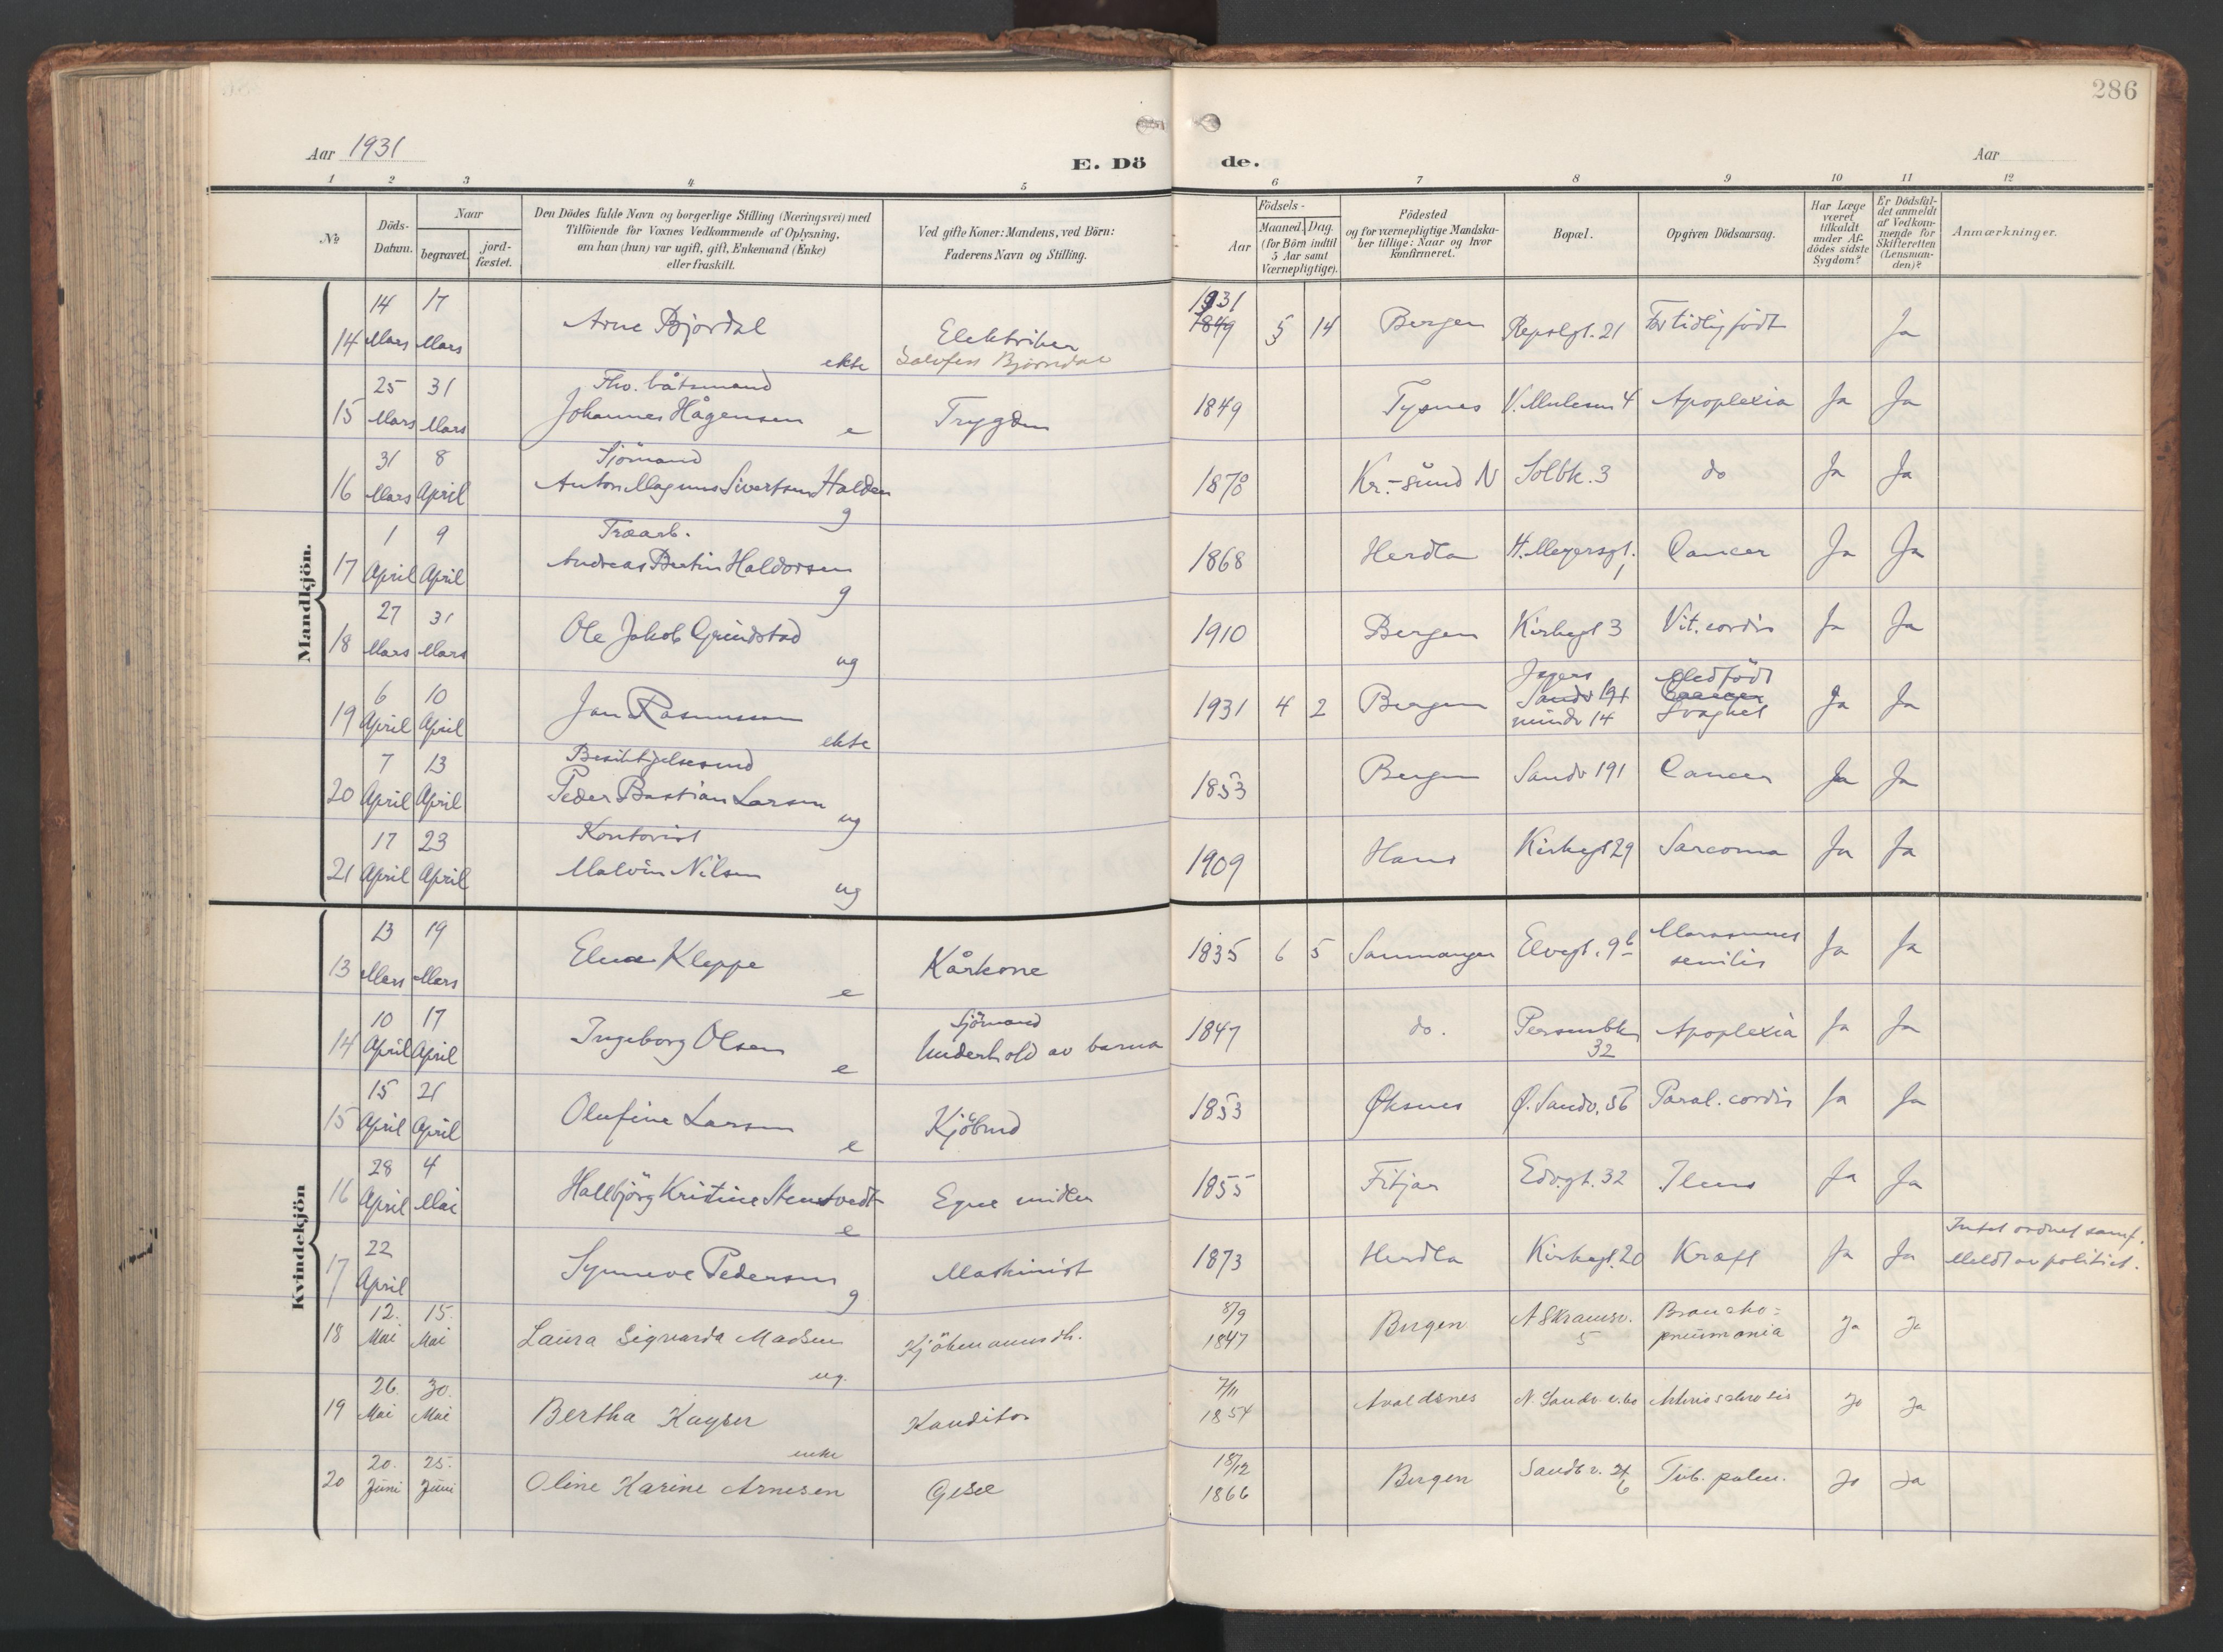 286
Aar 1931
E. Dö
de.
Aar
1 2 3 4 5 6 7 8 9 10 11 12
№
Döds-Datum.
Naar
begravet.
jord-fæstet.
Den Dödes fulde Navn og borgerlige Stilling (Næringsvei) med
Tilföiende for Voxnes Vedkommende af Oplysning,
om han (hun) var ugift, gift, Enkemand (Enke)
eller fraskilt.
Ved gifte Koner: Mandens, ved Börn:
Faderens Navn og Stilling.
Födsels-
Aar
Maaned. Dag.
(for Börn indtil
5 Aar samt
Værnepligtige).
Födested
og for værnepligtige Mandska-
ber tillige: Naar og hvor
konfirmeret.
Bopæl.
Opgiven Dödsaarsag.
Har Læge
været
tilkaldt
under Af-
dödes sidste
Sygdom?
Er Dödsfal-
det anmeldt
af Vedkom-
mende for
Skifteretten
(Lensman-
den)?
Anmærkninger.
Mandkjön.
14 14 Mars 17 Mars Arne Bjordal ekte Elektriker 1931 1849 3 14 Bergen Repslgt. 21 For tidlig födt Ja
15 25 Mars 31 Mars Fhv. båtsmand
Johannes Hågensen e Trygden 1849 Tysnes V. Mulesm 4 Apoplexia Ja Ja
16 31 Mars 8 April Sjömand
Anton Magnus Sivertsen Halden g 1878 Kr.-sund N Solbk. 3 do Ja Ja
17 1 April 9 April Træarb.
Andreas Bertin Haldorsen g 1868 Herdla H. Meyersgt. 1 Cancer Ja Ja
18 27 Mars 31 Mars Ole Jakob Grindstad ug 1910 Bergen Kirkegt 3 Vit. cordis Ja Ja
19 6 April 10 April Jan Rasmussen ekte 1931 4 2 Bergen Sandv 191 14 Medfödt Cancer Svaghet Ja Ja
20 7 April 13 April
Peder Bastian Larsen ug 1853 Bergen Sandv 191 Cancer Ja Ja
21 17 April 23 April Kontorist
Malvin Nilsen ug 1909 Haus Kirkegt 29 Sarcoma Ja Ja
Kvindekjön
13 13 Mars 19 Mars Kleppe e Kårkone 1835 6 5 Samnanger Elvegt. 9b Marasmus senilis Ja Ja
14 10 April 17 April Ingeborg Olsen e Sjömand
Underhold av barna 1847 do. 32 Apoplexia Ja Ja
15 15 April 21 April Olufine Larsen e Kjöbmd 1853 Øksnes Ø. Sandv. 56 Paral. cordis Ja Ja
16 28 April 4 Mai Hallbjörg Kristine Stenstvedt e Egne midler 1855 Fitjar Edvgt. 32 Ileus Ja Ja
17 22 April Synneve Pedersen g Maskinist 1873 Herdla Kirkegt. 20 Kræft Ja Ja Intet ordnet samf.
Meldt av politiet.
18 12. Mai 15. Mai Laura Sigvarda Madsen ug. Kjöbmannsdt. 8/9 1847 Bergen A Skramsv. 5 Broncho=
pneumonia Ja Ja
19 26. Mai 30. Mai Bertha Kayser enke Konditor 7/11 1854 Avaldsnes N. Sandv. v. 60 Arteriosclerosis Ja Ja
20 20. Juni 25. Juni Oline Karine Arnesen 18/12 1866 Bergen Sandv. Tub. pulm. Ja Ja